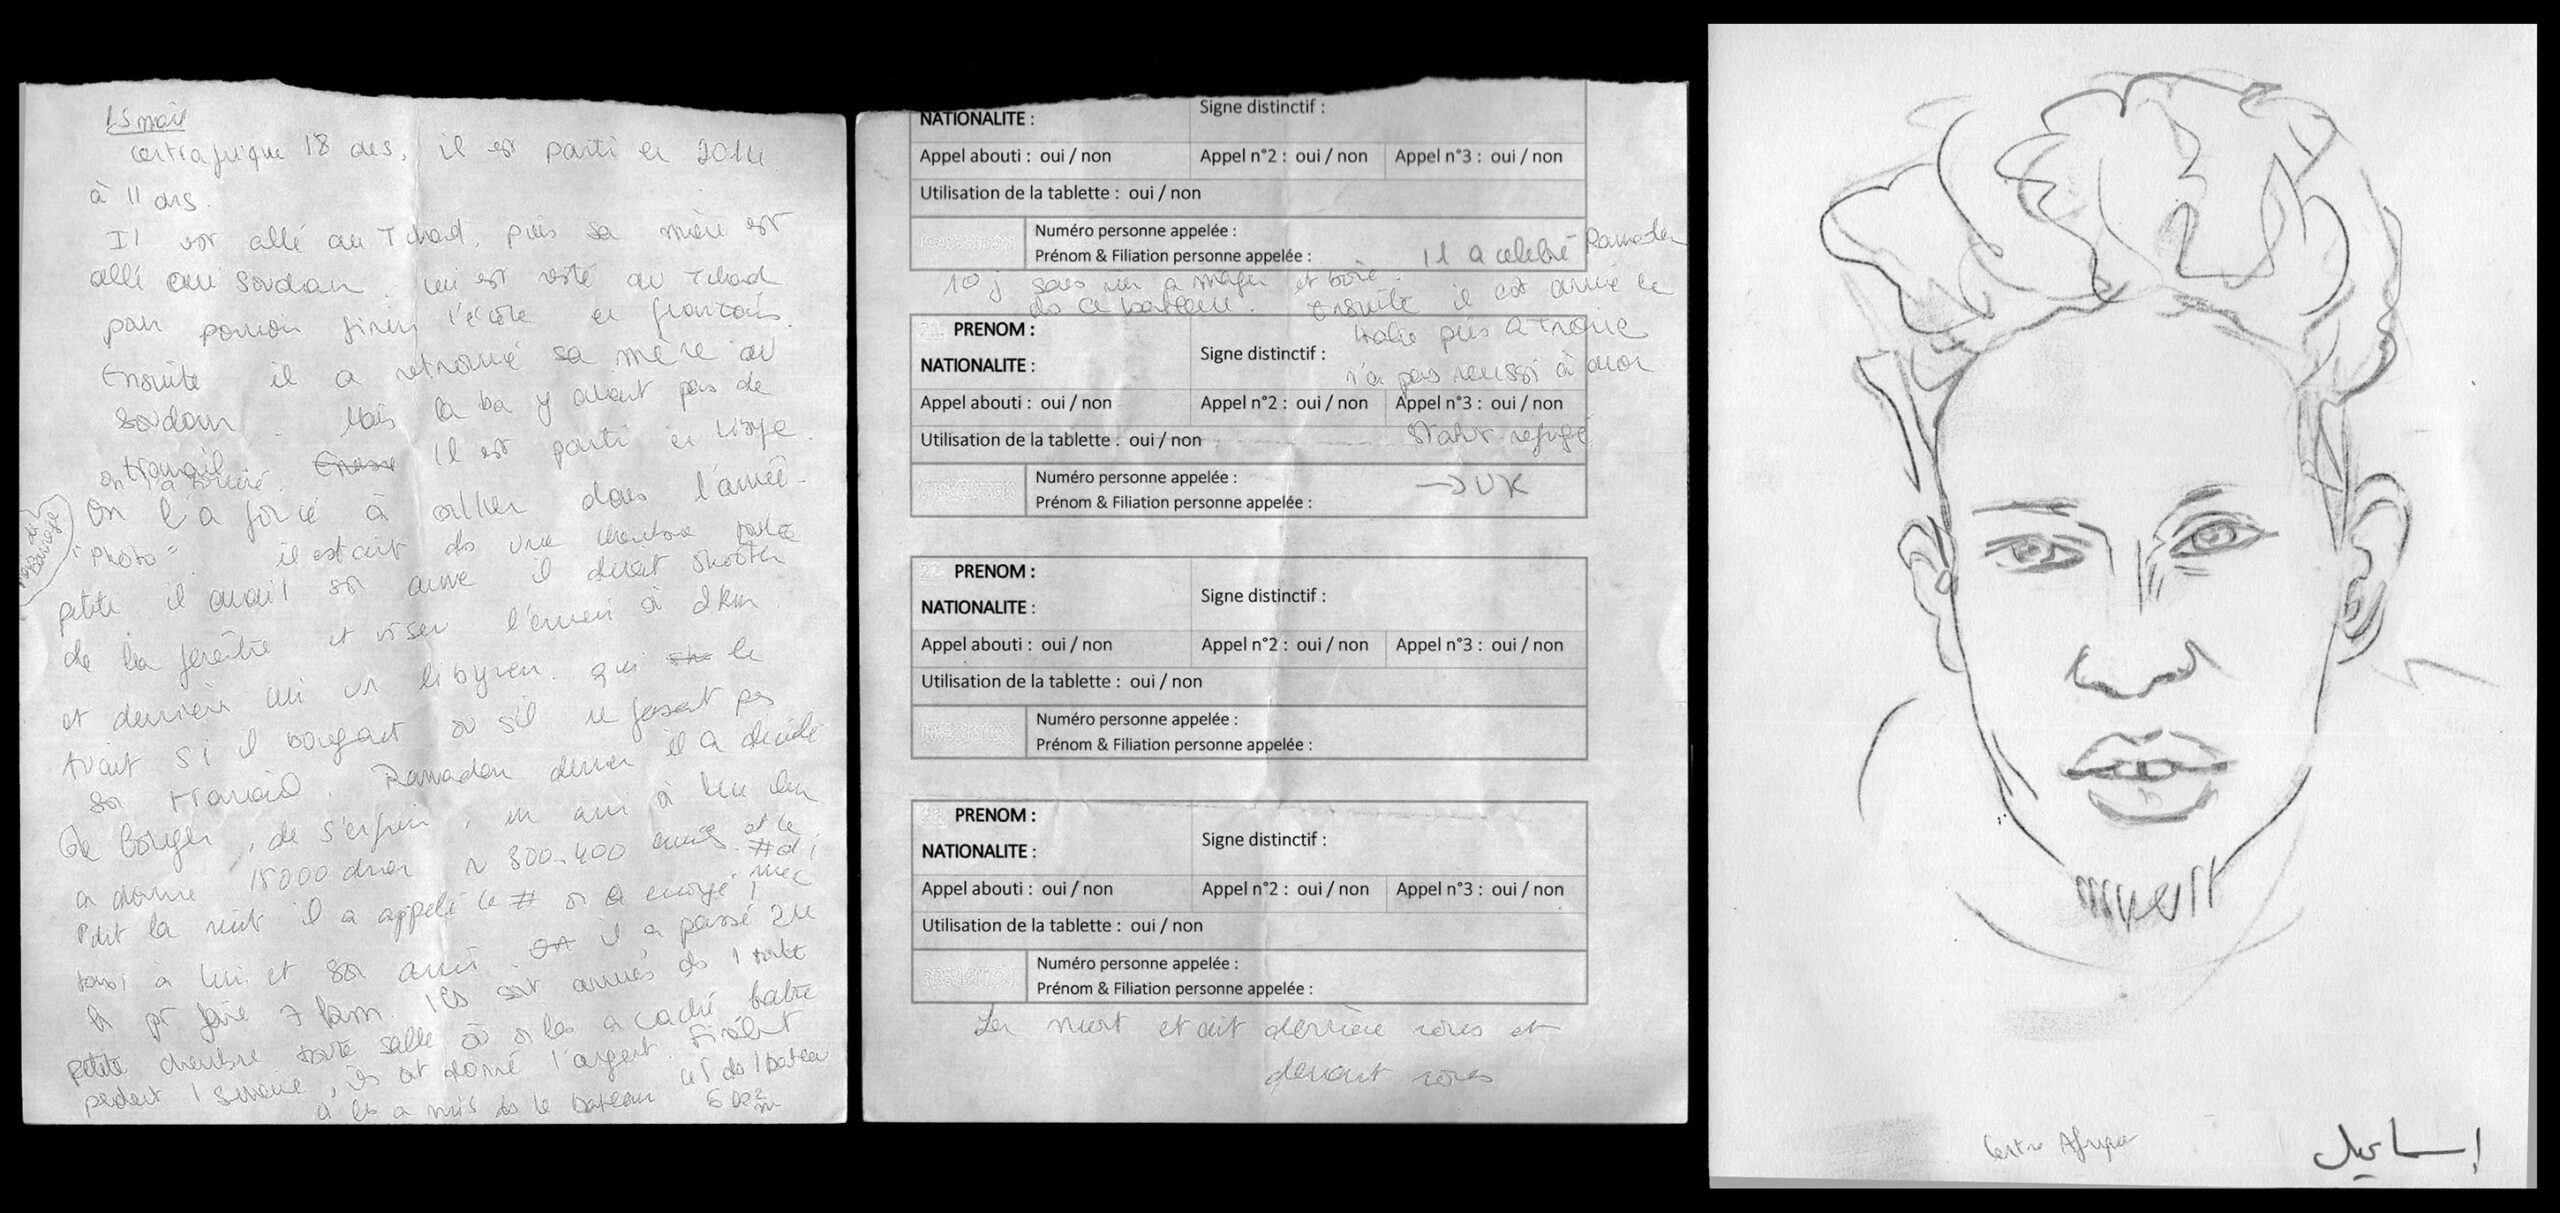 centrafrique 18 ans, il est parti en 2014
à 11 ans.
Il est allé au Tchad, puis sa mère est
allé au Soudan. lui est resté au Tchad
pour pouvoir finir l'école en français.
Ensuite il a retrouvé sa mère au
Soudan. Mais la ba y avait pas de
travail. Il est parti en Libye.
on l'a
On l'a forcé à aller dans l'armée.
"Photo" il était ds une chambre
petite il avait son arme il devait shooter
de la fenêtre et viser l'ennemi à 2km.
et derrière lui un libyen. qui le
tuait si il bougeait ou s'il ne faisait pas
son travail. Ramadan dernier il a décidé
de bouger, de s'enfuir, un ami à lui
a donné 15000 dinar ~ 300-400 euros. et le
# d'1 mec
Pdt la nuit il a appelé le # on a envoyé 1
taxi à lui et son ami. il a passé 24
h pr faire 7 km. Ils sont arrivés ds 1 toute
petite chambre toute salle où on les a caché
pendant 1 semaine, ils ont donné l'argent.
à les a mis ds le bateau
NATIONALITE :
Signe distinctif :
Appel abouti : oui / non Appel n°2 : oui / non Appel n°3 : oui / non
Utilisation de la tablette : oui / non
Numéro personne appelée :
Prénom & Filiation personne appelée : Il a célébré Ramadan
10 j sans rien a manger et boire.
ds ce bateau. Ensuite il est arrivé en
21. PRENOM : Italie puis a
Signe distinctif :
NATIONALITE : n'a pas reussi à avoir
Appel abouti : oui / non Appel n°2 : oui / non Appel n°3 : oui / non
Utilisation de la tablette : oui / non Statut refugié
Numéro personne appelée : → UK
Prénom & Filiation personne appelée :
22. PRENOM :
Signe distinctif :
NATIONALITE :
Appel abouti : oui / non Appel n°2 : oui / non Appel n°3 : oui / non
Utilisation de la tablette : oui / non
Numéro personne appelée :
Prénom & Filiation personne appelée :
23. PRENOM :
Signe distinctif :
NATIONALITE :
Appel abouti : oui / non Appel n°2 : oui / non Appel n°3 : oui / non
Utilisation de la tablette : oui / non
Numéro personne appelée :
Prénom & Filiation personne appelée :
La mort etait derrière nous et
devant nous
Centre Afrique
إسماعيل